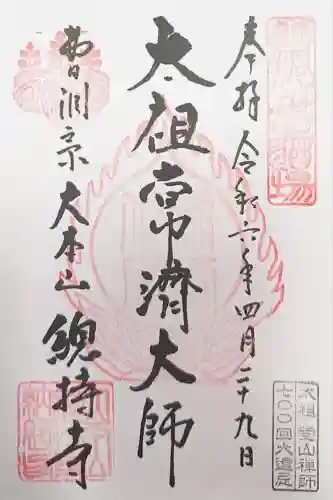 奉拝 令和六年四月二十九日
太祖常済大師
曹洞宗 大本山 總持寺
太祖瑩山禅師
七〇〇回大遠忌